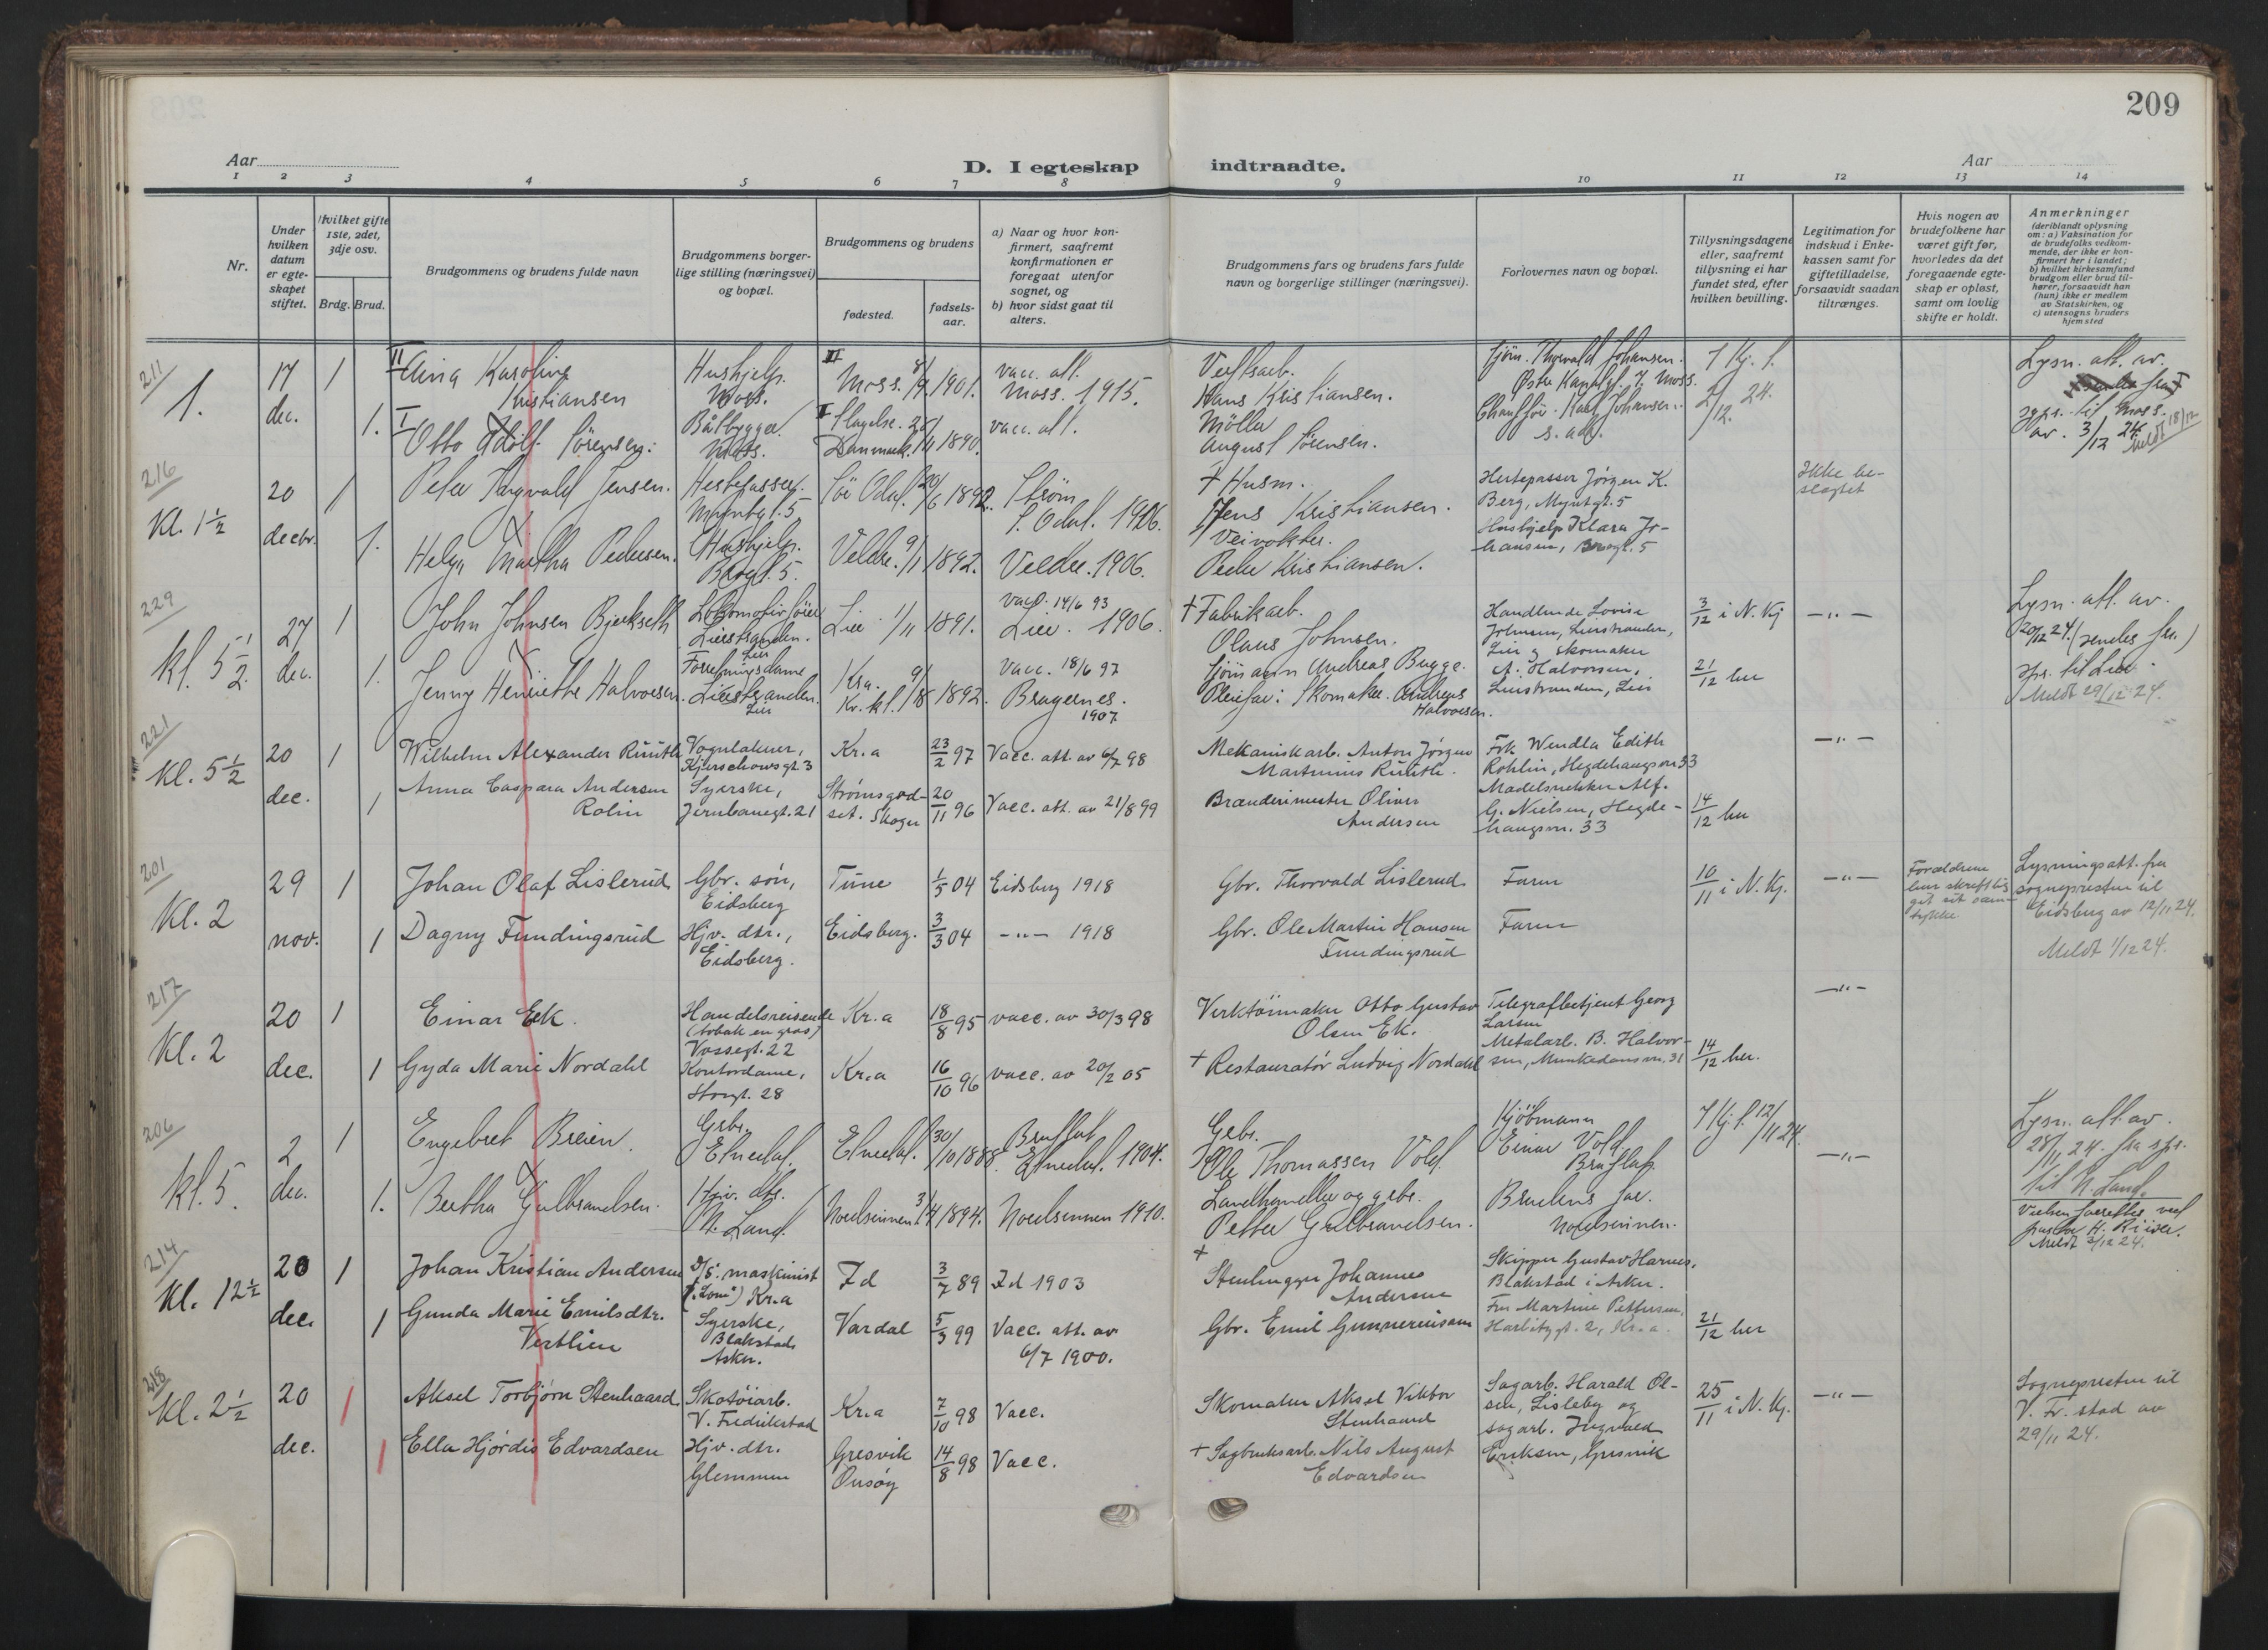 209
Aar
D. I egteskap indtraadte.
Aar
1 2 3 4 5 6 7 8 9 10 11 12 13 14
Nr.
Under
hvilken
datum
er egte-
skapet
stiftet.
Hvilket gifte
1ste, 2det,
3dje osv.
Brdg. Brud.
Brudgommens og brudens fulde navn
Brudgommens borger-
lige stilling (næringsvei)
og bopæl.
Brudgommens og brudens
fødested.
fødsels-
aar.
a) Naar og hvor kon-
firmert, saafremt
konfirmationen er
foregaat utenfor
sognet, og
b) hvor sidst gaat til
alters.
Brudgommens fars og brudens fars fulde
navn og borgerlige stillinger (næringsvei).
Forlovernes navn og bopæl.
Tillysningsdagene
eller, saafremt
tillysning ei har
fundet sted, efter
hvilken bevilling.
Legitimation for
indskud i Enke-
kassen samt for
giftetilladelse,
forsaavidt saadan
tiltrænges.
Hvis nogen av
brudefolkene har
været gift før,
hvorledes da det
foregaaende egte-
skap er opløst,
samt om lovlig
skifte er holdt.
Anmerkninger
(deriblandt oplysning
om: a) Vaksination for
de brudefolks vedkom-
mende, der ikke er kon-
firmert her i landet;
b) hvilket kirkesamfund
brudgom eller brud til-
hører, forsaavidt han
(hun) ikke er medlem
av Statskirken, og
c) utensogns bruders
hjemsted
211
1.
17
dec.
1
1.
II Aina Karoline
Kristiansen
I Otto Adolf Sørensen.
Hushjelp.
Moss.
Båtbygger.
Moss.
II
Moss. 8/9 1901.
I Slagelse. 25/11 1890.
Danmark.
vacc. att.
Moss. 1915.
vacc. att.
Verftsarb.
Hans Kristiansen.
Möller
August Sørensen.
Sjöm. Thorvald Johansen.
Østre Kanalgt. 7. Moss.
Chaufför. Karl Johansen.
s. adr.
7 Kj. l.
2/12. 24.
Lysn. att. av.
spr. til Moss.
av. 3/12 24.
Meldt 18/12
216
Kl. 1½
20
decbr.
1
1.
Peter Thorvald Jensen.
Helga Martha Pedersen.
Hestepasser.
Myntgt. 5
Hushjelp.
Brogt. 5.
Sör Odal. 20/6 1892.
Veldre. 9/1 1892.
Strøm
S. Odal. 1906.
Veldre. 1906.
+ Husm.
Jens Kristiansen.
Veivokter.
Peder Kristiansen.
Hestepasser Jørgen K.
Berg, Myntgt. 5
Hushjelp Klara Jo-
hansen, Brogt. 5
Ikke be-
slegtet
229
kl. 5½
27
dec.
1
1.
John Johnsen Bjerkseth
Jenny Henriette Halvorsen.
Lokomotivfører
Lierstranden.
Lier
Forretningsdame
Lierstranden.
Lier
Lier 1/11 1891.
Kra. 9/8 1892.
Kr. kl. 1
vacc. 14/6 93
Lier. 1906.
Vacc. 18/6 97
Bragernes.
1907
+ Fabrikarb.
Olaus Johnsen.
Sjömann Andreas Bugge.
Pleiefar: Skomaker. Andreas
Halvorsen.
Handlende Lovise
Johnsen, Lierstranden,
Lier og skomaker
A. Halvorsen,
Lierstranden, Lier
3/12 i N. Kj
21/12 her
— „ —
Lysn. att. av.
20/12 24. (sendes fra.)
spr. til Lier.
Meldt 29/12 24.
221
Kl. 5½
20
dec.
1
1
Wilhelm Alexander Ruuth
Anna Caspara Andersen
Rolin
Vognlakerer,
Kjerschowsgt. 3
Syerske,
Jernbanegt. 21
Kr.a 23/2 97
Strømsgod-
set. Skoger 20/11 96
Vacc. att. av 6/7 98
Vacc. att. av 21/8 99
Mekaniskarb. Anton Jörgen
Martinius Ruuth.
Brænderimester Oliver
Andersen
Frk Wendla Edith
Rohlin, Hegdehaugsvn 33
Modelsnekker Alf.
G. Nielsen, Hegde-
haugsvn. 33
14/12 her
— „ —
201
Kl. 2
29
nov.
1
1
Johan Olaf Lislerud
Dagny Fundingsrud
Gbr. søn,
Eidsberg
Hjv. dtr.,
Eidsberg.
Tune 1/5 04
Eidsberg. 3/3 04
Eidsberg 1918
— „ — 1918
Gbr. Thorvald Lislerud
Gbr. Ole Martin Hansen
Fundingsrud
Faren
Faren
10/11 i N. Kj.
— „ —
Forældrene
har skriftlig
git sit sam-
tykke
Lysningsatt. fra
sognepresten til
Eidsberg av 12/11 24.
Meldt 1/12 24.
217
Kl. 2
20
dec.
1
1
Einar Ek.
Gyda Marie Nordahl
Handelsreisende
(tobak en gros)
Vossegt. 22
Kontordame,
Storgt. 28
Kr.a 18/8 95
Kr.a 16/10 96
vacc. av 30/3 98
vacc. av 20/2 05
Verktöimaker Otto Gustav
Olsen Ek.
+ Restauratör Ludvig Nordahl
Telegrafbetjent Georg
Larsen
Metalarb. B. Halvor-
sen, Munkedamsvn. 31
14/12 her.
— „ —
206
kl. 5.
2
dec.
1
1.
Engebret Breien.
Bertha Gulbrandsen.
Grbr.
Etnedal.
Hjv. dtr.
N. Land.
Etnedal. 30/10 1888.
Nordsinnen. 3/4 1894.
Bruflat
Etnedal. 1904.
Nordsinnen 1910.
Gebr.
Ole Thomassen Vold.
Landhandler og grbr.
Petter Gulbrandsen.
Kjöbmann
Einar Vold,
Bruflat.
Brudens far.
Nordsinnen.
7 Kj. l. 12/11 24.
— „ —
Lysn. att. av.
28/11 24. fra spr.
til N. Land.
Vielsen forrettes ved
pastor H. Riiser.
Meldt 2/12 24.
214
Kl. 12½
20
dec.
1
1
Johan Kristian Andersen
Gunda Marie Emilsdtr.
Vertlien
D/S. maskinist
("Lom") Kr.a
Syerske,
Blakstad
Asker.
Id 3/7 89
Vardal 5/3 99
Id 1903
Vacc. att. av
6/7 1900.
+
Stenhugger Johannes
Andersen
Gbr. Emil Gunnereiusen
Skipper Gustav Harnes,
Blakstad i Asker.
Fru Martine Pettersen,
Harbitzgt. 2, Kr.a.
21/12 her
218
Kl. 2½
20
dec.
1
1
Aksel Torbjørn Stenhaard
Ella Hjørdis Edvardsen
Skotöiarb.
V. Fredrikstad
Hjv. dtr.
Glemmen
Kr.a 7/10 98
Gresvik
Onsöy 14/8 98
Vacc.
Vacc.
Skomaker Aksel Viktor
Stenhaard
+ Sagbruksarb. Nils August
Edvardsen
Sagarb. Harald Ol-
sen, Lisleby og
sagarb. Ingvald
Eriksen, Gresvik
25/11 i N. Kj.
— „ —
Sognepresten til
V. Fr. stad av
29/11 24.